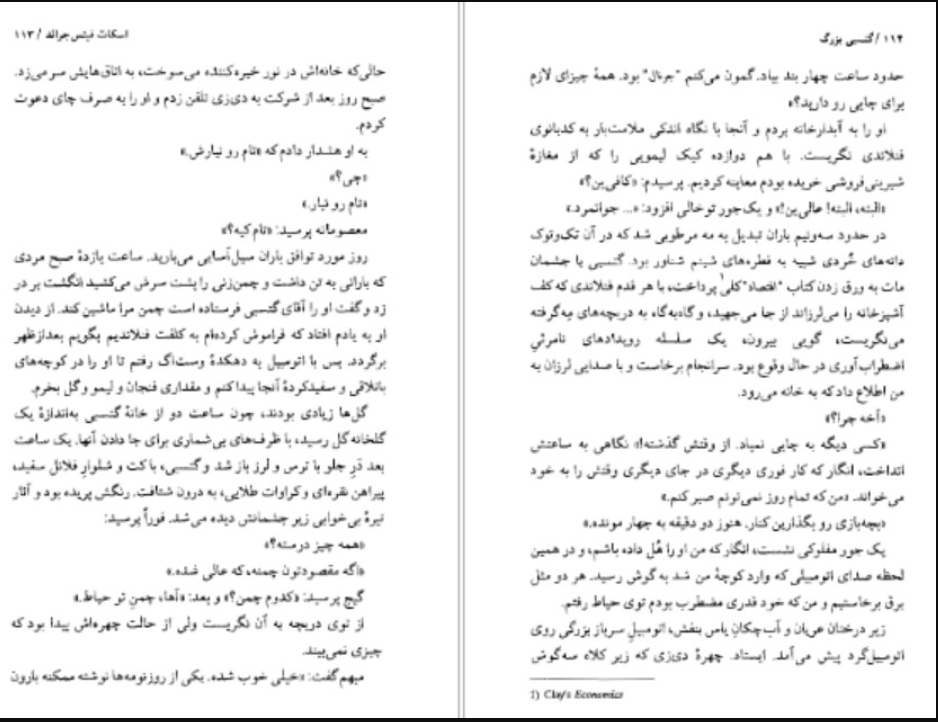 اسکات فیتس جرالد / ۱۱۳
حالی‌که خانه‌اش در نور خیره‌کننده می‌سوخت، به اتاق‌هایش سر می‌زد.
صبح روز بعد از شرکت به دی‌زی تلفن زدم و او را به صرف چای دعوت
کردم.
به او هشدار دادم که «تام رو نیارش.»
«چی؟»
«تام رو نیار.»
معصومانه پرسید: «تام کیه؟»
روز مورد توافق باران سیل‌آسایی می‌بارید. ساعت یازدهٔ صبح مردی
که بارانی به تن داشت و چمن‌زنی را پشت سرش می‌کشید انگشت بر در
زد و گفت او را آقای گتسبی فرستاده است چمن مرا ماشین کند. از دیدن
او به یادم افتاد که فراموش کرده‌ام به کلفت فنلاندیم بگویم بعدازظهر
برگردد. پس با اتومبیل به دهکدهٔ وست‌اگ رفتم تا او را در کوچه‌های
باتلاقی و سفیدکردهٔ آنجا پیدا کنم و مقداری فنجان و لیمو و گل بخرم.
گل‌ها زیادی بودند، چون ساعت دو از خانهٔ گتسبی به‌اندازهٔ یک
گلخانه گل رسید، با ظرف‌های بی‌شماری برای جا دادن آنها. یک ساعت
بعد دَرِ جلو با ترس و لرز باز شد و گتسبی، با کت و شلوار فلانل سفید،
پیراهن نقره‌ای و کراوات طلایی، به درون شتافت. رنگش پریده بود و آثار
تیرهٔ بی‌خوابی زیر چشمانش دیده می‌شد. فوراً پرسید:
«همه چیز درسته؟»
«اگه مقصودتون چمنه، که عالی شده.»
گیج پرسید: «کدوم چمن؟» و بعد: «آها، چمنِ تو حیاط.»
از توی دریچه به آن نگریست ولی از حالت چهره‌اش پیدا بود که
چیزی نمی‌بیند.
مبهم گفت: «خیلی خوب شده. یکی از روزنومه‌ها نوشته ممکنه بارون
۱۱۴ / گتسبی بزرگ
حدود ساعت چهار بند بیاد. گمون می‌کنم "جرنال" بود. همهٔ چیزای لازم
برای چایی رو دارید؟»
او را به آبدارخانه بردم و آنجا با نگاه اندکی ملامت‌بار به کدبانوی
فنلاندی نگریست. با هم دوازده کیک لیمویی را که از مغازهٔ
شیرینی‌فروشی خریده بودم معاینه کردیم. پرسیدم: «کافی‌ین؟»
«البته، البته! عالی‌ین!» و یک‌جور توخالی افزود: «... جوانمرد.»
در حدود سه‌ونیم باران تبدیل به مه مرطوبی شد که در آن تک‌وتوک
دانه‌های خُردی شبیه به قطره‌های شبنم شناور بود. گتسبی با چشمان
مات به ورق زدن کتاب "اقتصاد" کلی۱ پرداخت، با هر قدم فنلاندی که کف
آشپزخانه را می‌لرزاند از جا می‌جهید، و گاه‌به‌گاه به دریچه‌های مه‌گرفته
می‌نگریست، گویی بیرون، یک سلسله رویدادهای نامرئیِ
اضطراب‌آوری در حال وقوع بود. سرانجام برخاست و با صدایی لرزان به
من اطلاع داد که به خانه می‌رود.
«آخه چرا؟»
«کسی دیگه به چایی نمیاد. از وقتش گذشته!» نگاهی به ساعتش
انداخت، انگار که کار فوری دیگری در جای دیگری وقتش را به خود
می‌خواند. «من که تمام روز نمی‌تونم صبر کنم.»
«بچه‌بازی رو بگذارین کنار. هنوز دو دقیقه به چهار مونده.»
یک جور مفلوکی نشست، انگار که من او را هُل داده باشم، و در همین
لحظه صدای اتومبیلی که وارد کوچهٔ من شد به گوش رسید. هر دو مثل
برق برخاستیم و من که خود قدری مضطرب بودم توی حیاط رفتم.
زیر درختان عریان و آب‌چکانِ یاس بنفش، اتومبیلِ سرباز بزرگی روی
اتومبیل‌گرد پیش می‌آمد. ایستاد. چهرهٔ دی‌زی که زیر کلاه سه‌گوش
1) Clay's Economics